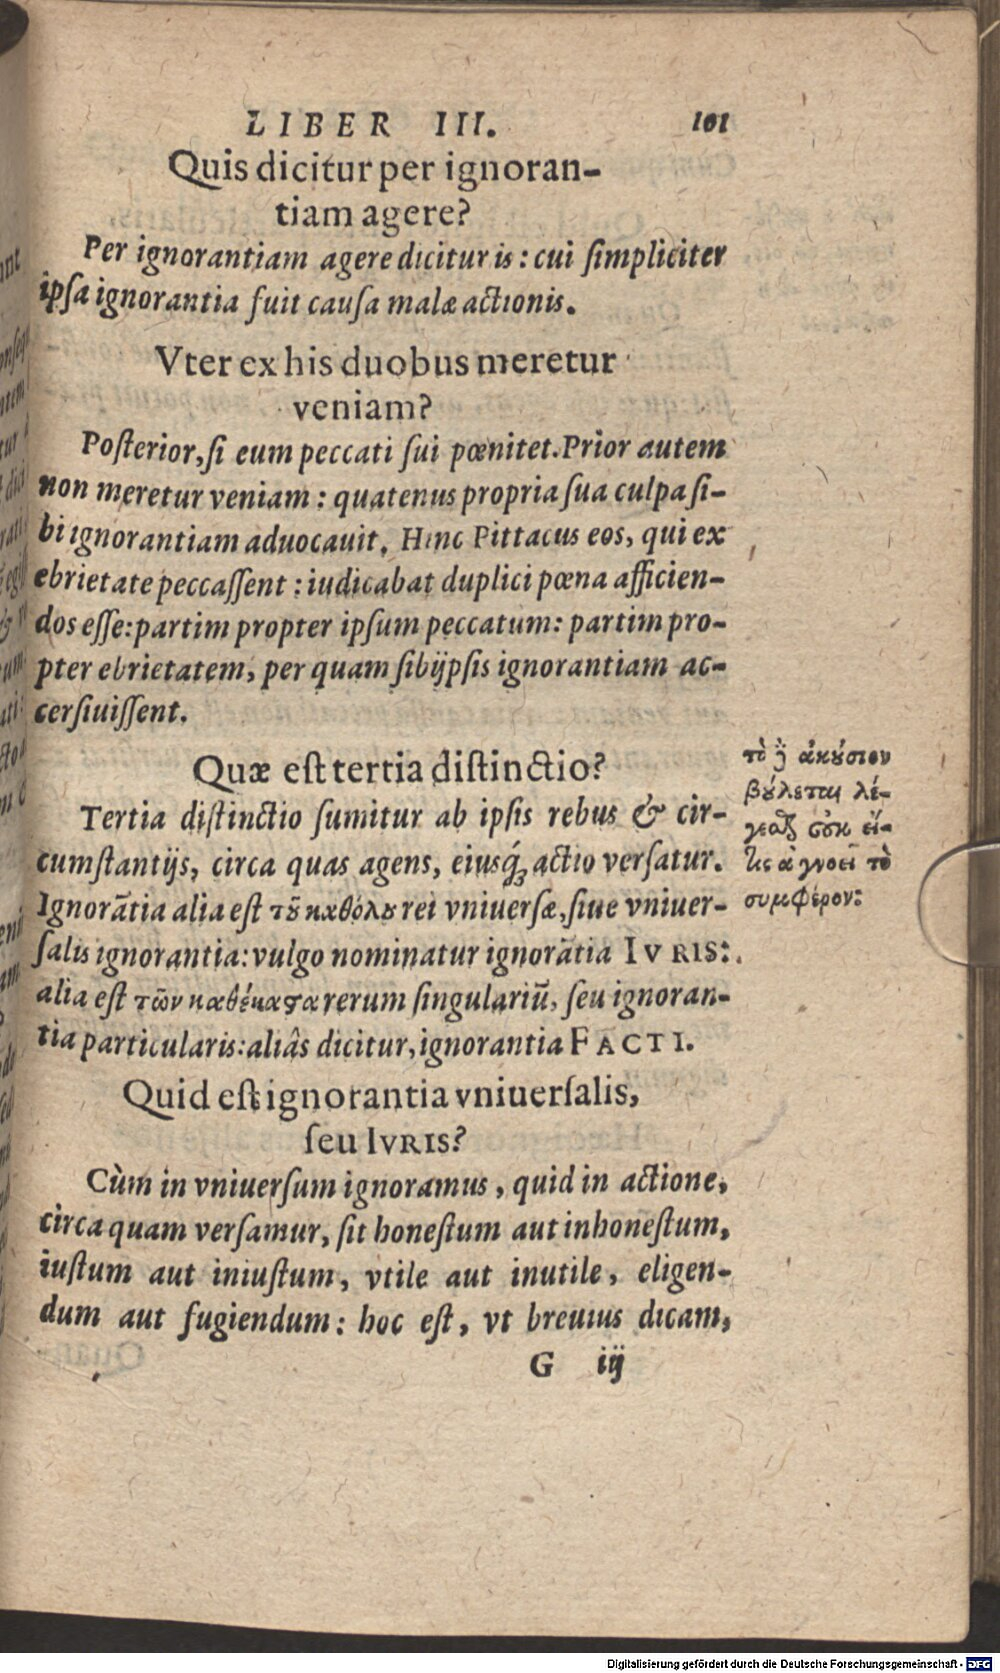 LIBER III. 101
Quis dicitur per ignoran-
tiam agere?
Per ignorantiam agere dicitur is: cui ſimpliciter
ipſa ignorantia fuit cauſa malæ actionis.
Vter ex his duobus meretur
veniam?
Poſterior, ſi eum peccati ſui pœnitet. Prior autem
non meretur veniam: quatenus propria ſua culpa ſi-
bi ignorantiam aduocauit. Hinc Pittacus eos, qui ex
ebrietate peccaſſent: iudicabat duplici pœna afficien-
dos eſſe: partim propter ipſum peccatum: partim pro-
pter ebrietatem, per quam ſibijpſis ignorantiam ac-
cerſiuiſſent.
Quæ eſt tertia diſtinctio?
Tertia diſtinctio ſumitur ab ipſis rebus & cir-
cumſtantijs, circa quas agens, eiusq́ꝫ actio verſatur.
Ignorãtia alia eſt τοῦ καθόλου rei vniuerſæ, ſiue vniuer-
ſalis ignorantia: vulgo nominatur ignorãtia IVRIS:
alia eſt τῶν καθέκαϛα rerum ſingulariũ, ſeu ignoran-
tia particularis: aliâs dicitur, ignorantia FACTI.
Quid eſt ignorantia vniuerſalis,
ſeu IVRIS?
Cùm in vniuerſum ignoramus, quid in actione,
circa quam verſamur, ſit honeſtum aut inhoneſtum,
iuſtum aut iniuſtum, vtile aut inutile, eligen-
dum aut fugiendum: hoc eſt, vt breuius dicam,
G iij
τὸ δὲ ἀκούσιον
βούλεται λέ-
γεσθαι οὐκ εἴ-
τις ἀγνοεῖ τὸ
συμφέρον:
Digitalisierung gefördert durch die Deutsche Forschungsgemeinschaft - DFG